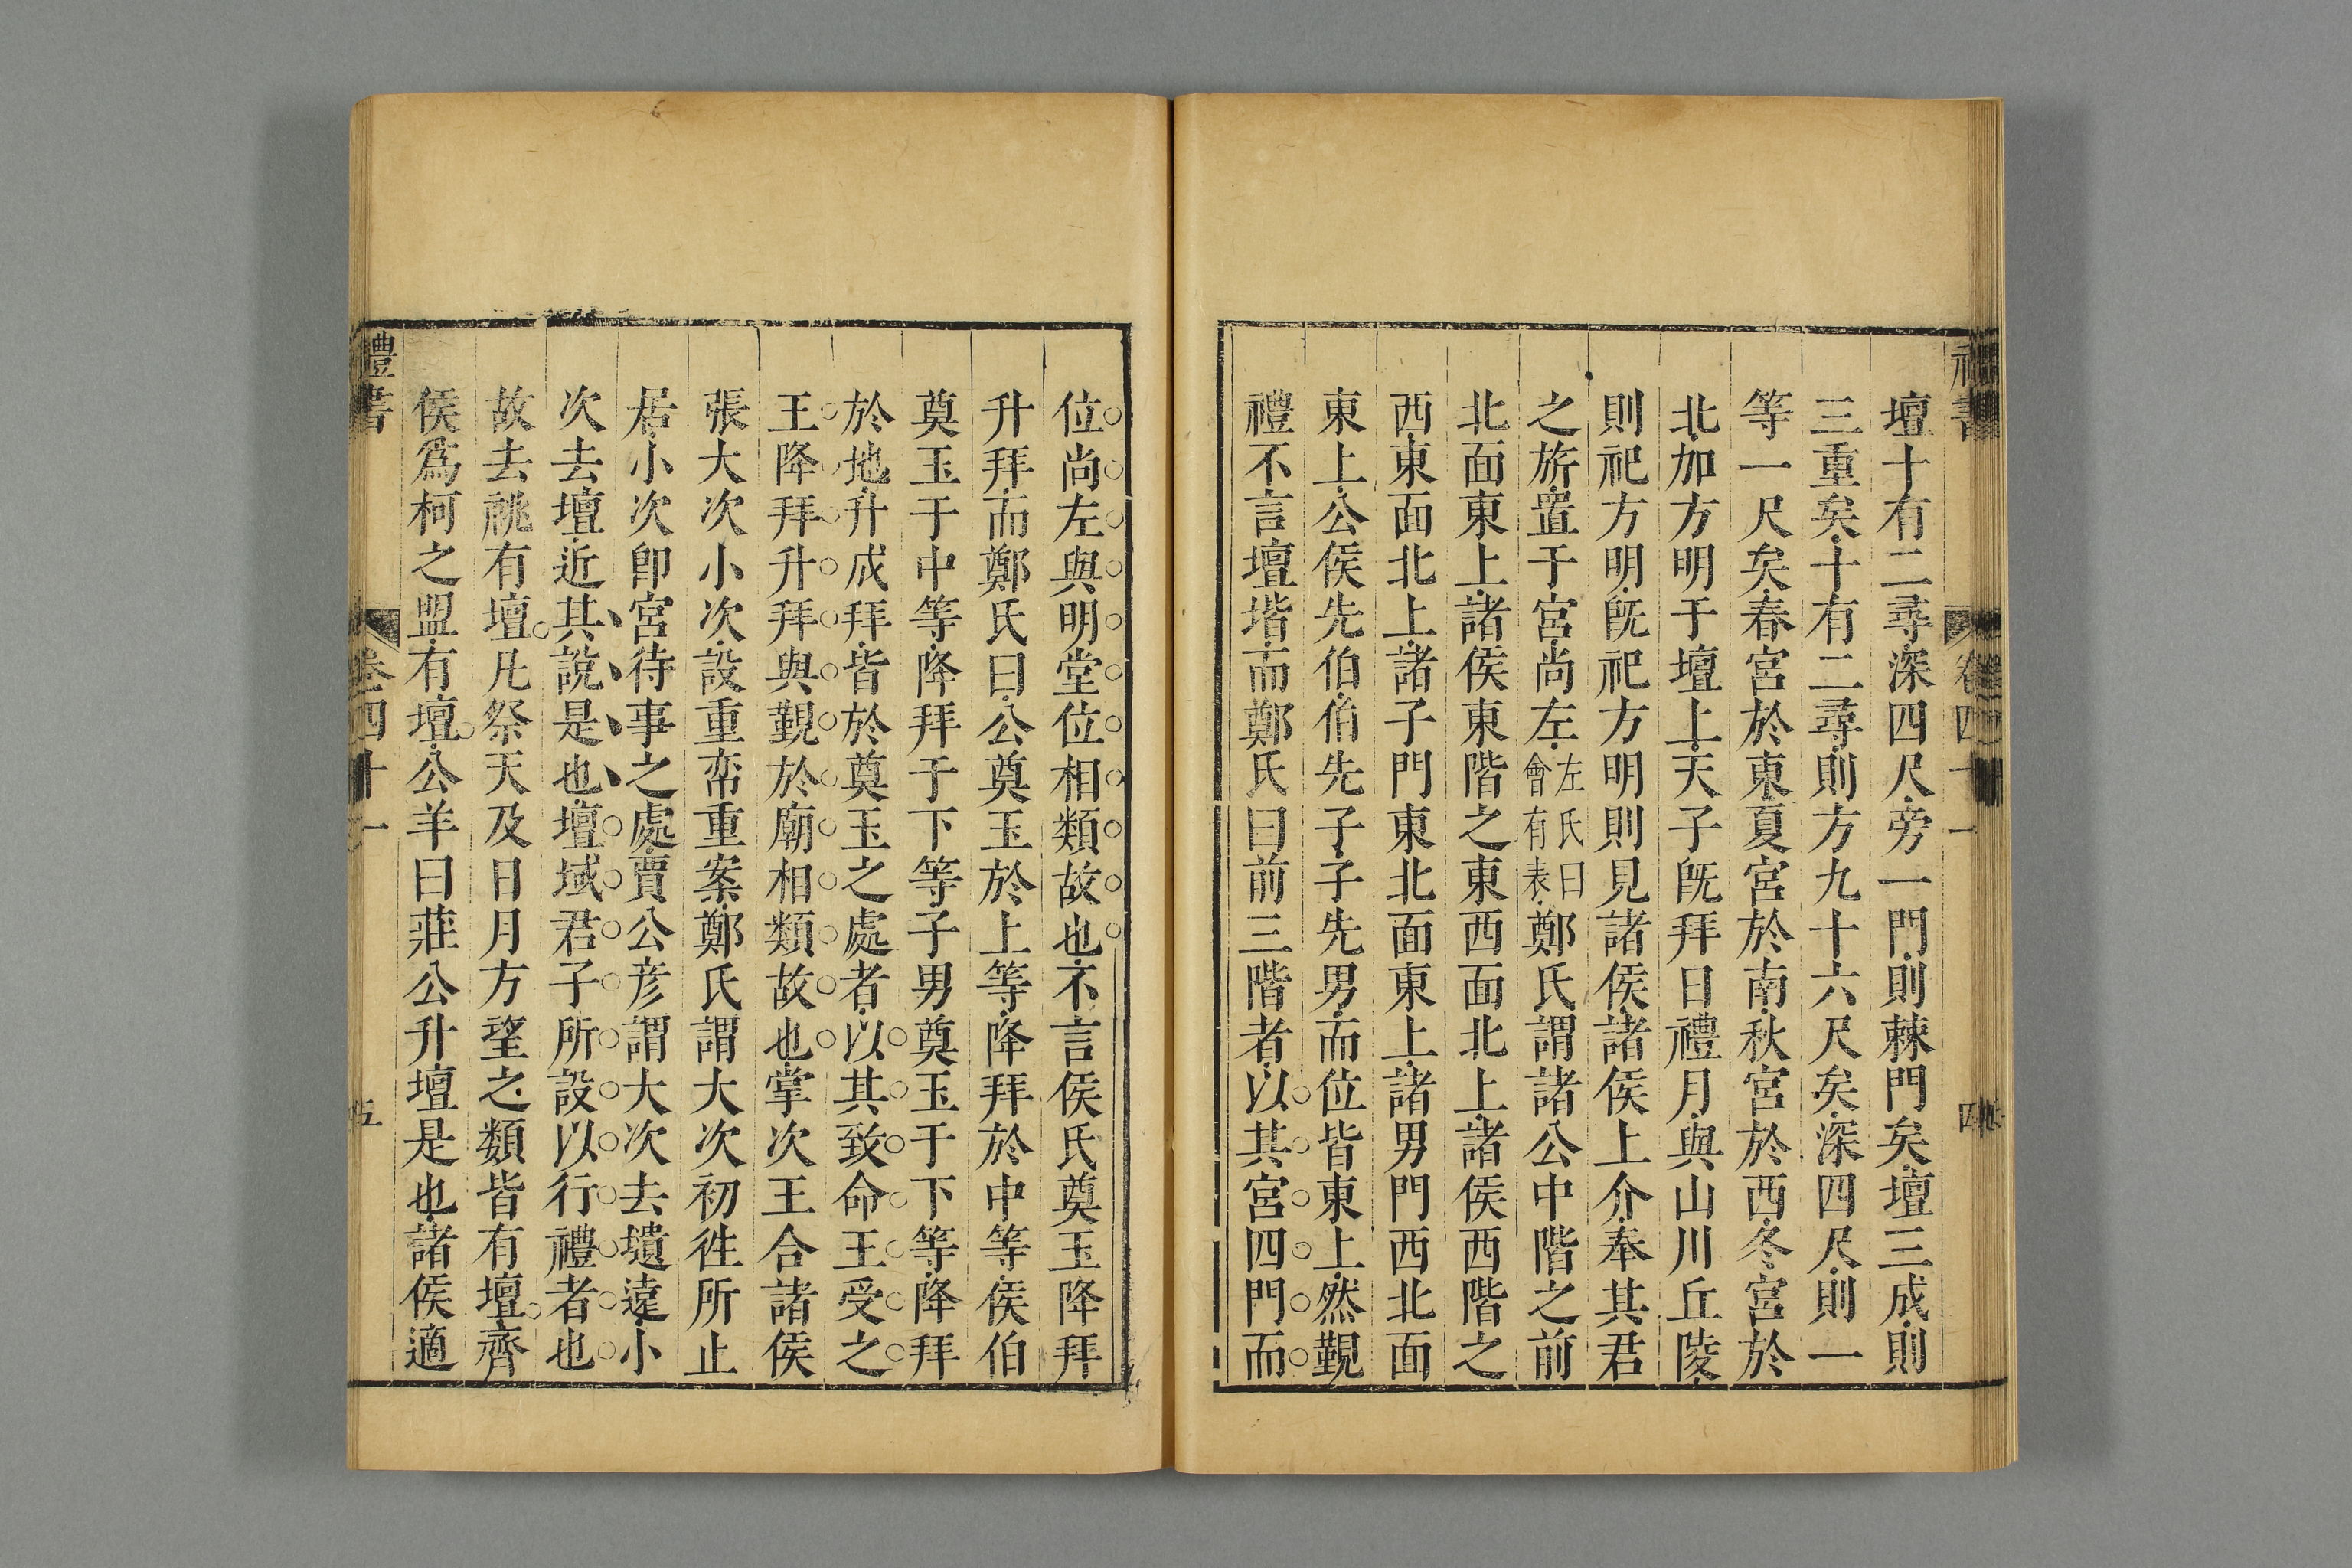 禮書
卷四十一
四
壇十有二尋深四尺旁一門則棘門矣壇三成則
三重矣十有二尋則方九十六尺矣深四尺則一
等一尺矣春宮於東夏宮於南秋宮於西冬宮於
北加方明于壇上天子旣拜日禮月與山川丘陵
則祀方明旣祀方明則見諸侯諸侯上介奉其君
之旂置于宮尚左左氏曰會有表鄭氏謂諸公中階之前
北面東上諸侯東階之東西面北上諸侯西階之
西東面北上諸子門東北面東上諸男門西北面
東上公侯先伯伯先子子先男而位皆東上然覲
禮不言壇堦而鄭氏曰前三階者以其宮四門而
位尚左與明堂位相類故也不言侯氏奠玉降拜
升拜而鄭氏曰公奠玉於上等降拜於中等侯伯
奠玉于中等降拜于下等子男奠玉于下等降拜
於地升成拜皆於奠玉之處者以其致命王受之
王降拜升拜與覲於廟相類故也掌次王合諸侯
張大次小次設重帟重案鄭氏謂大次初徃所止
居小次卽宮待事之處賈公彦謂大次去壝遠小
次去壇近其說是也壇域君子所設以行禮者也
故去祧有壇凡祭天及日月方望之類皆有壇齊
侯爲柯之盟有壇公羊曰莊公升壇是也諸侯適
禮書
卷四十一
五